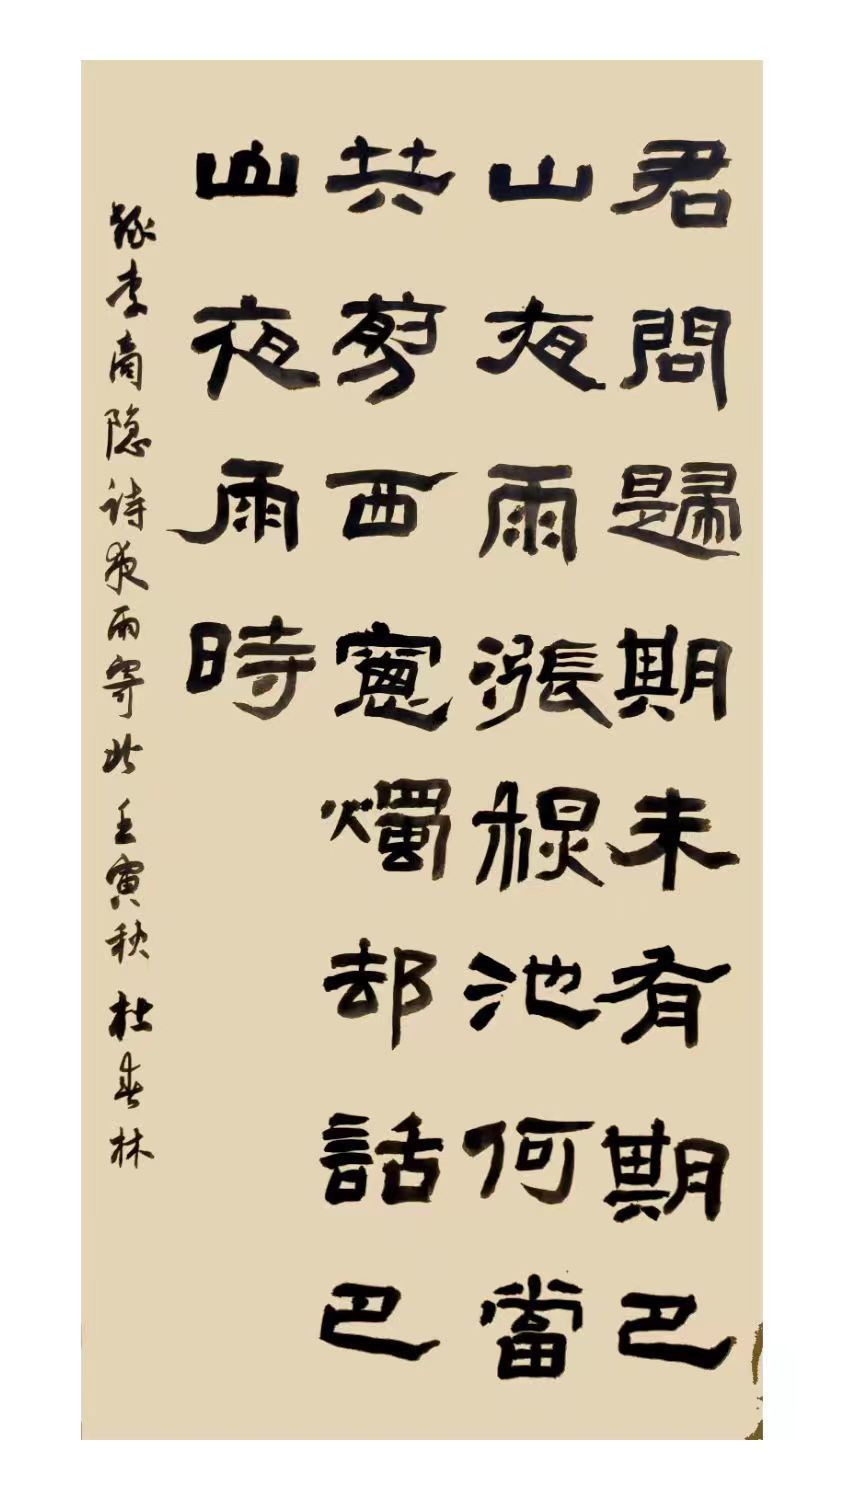 君問歸期未有期巴
山夜雨漲秋池何當
共剪西窻燭却話巴
山夜雨時
録李商隐诗夜雨寄北壬寅秋杜春林